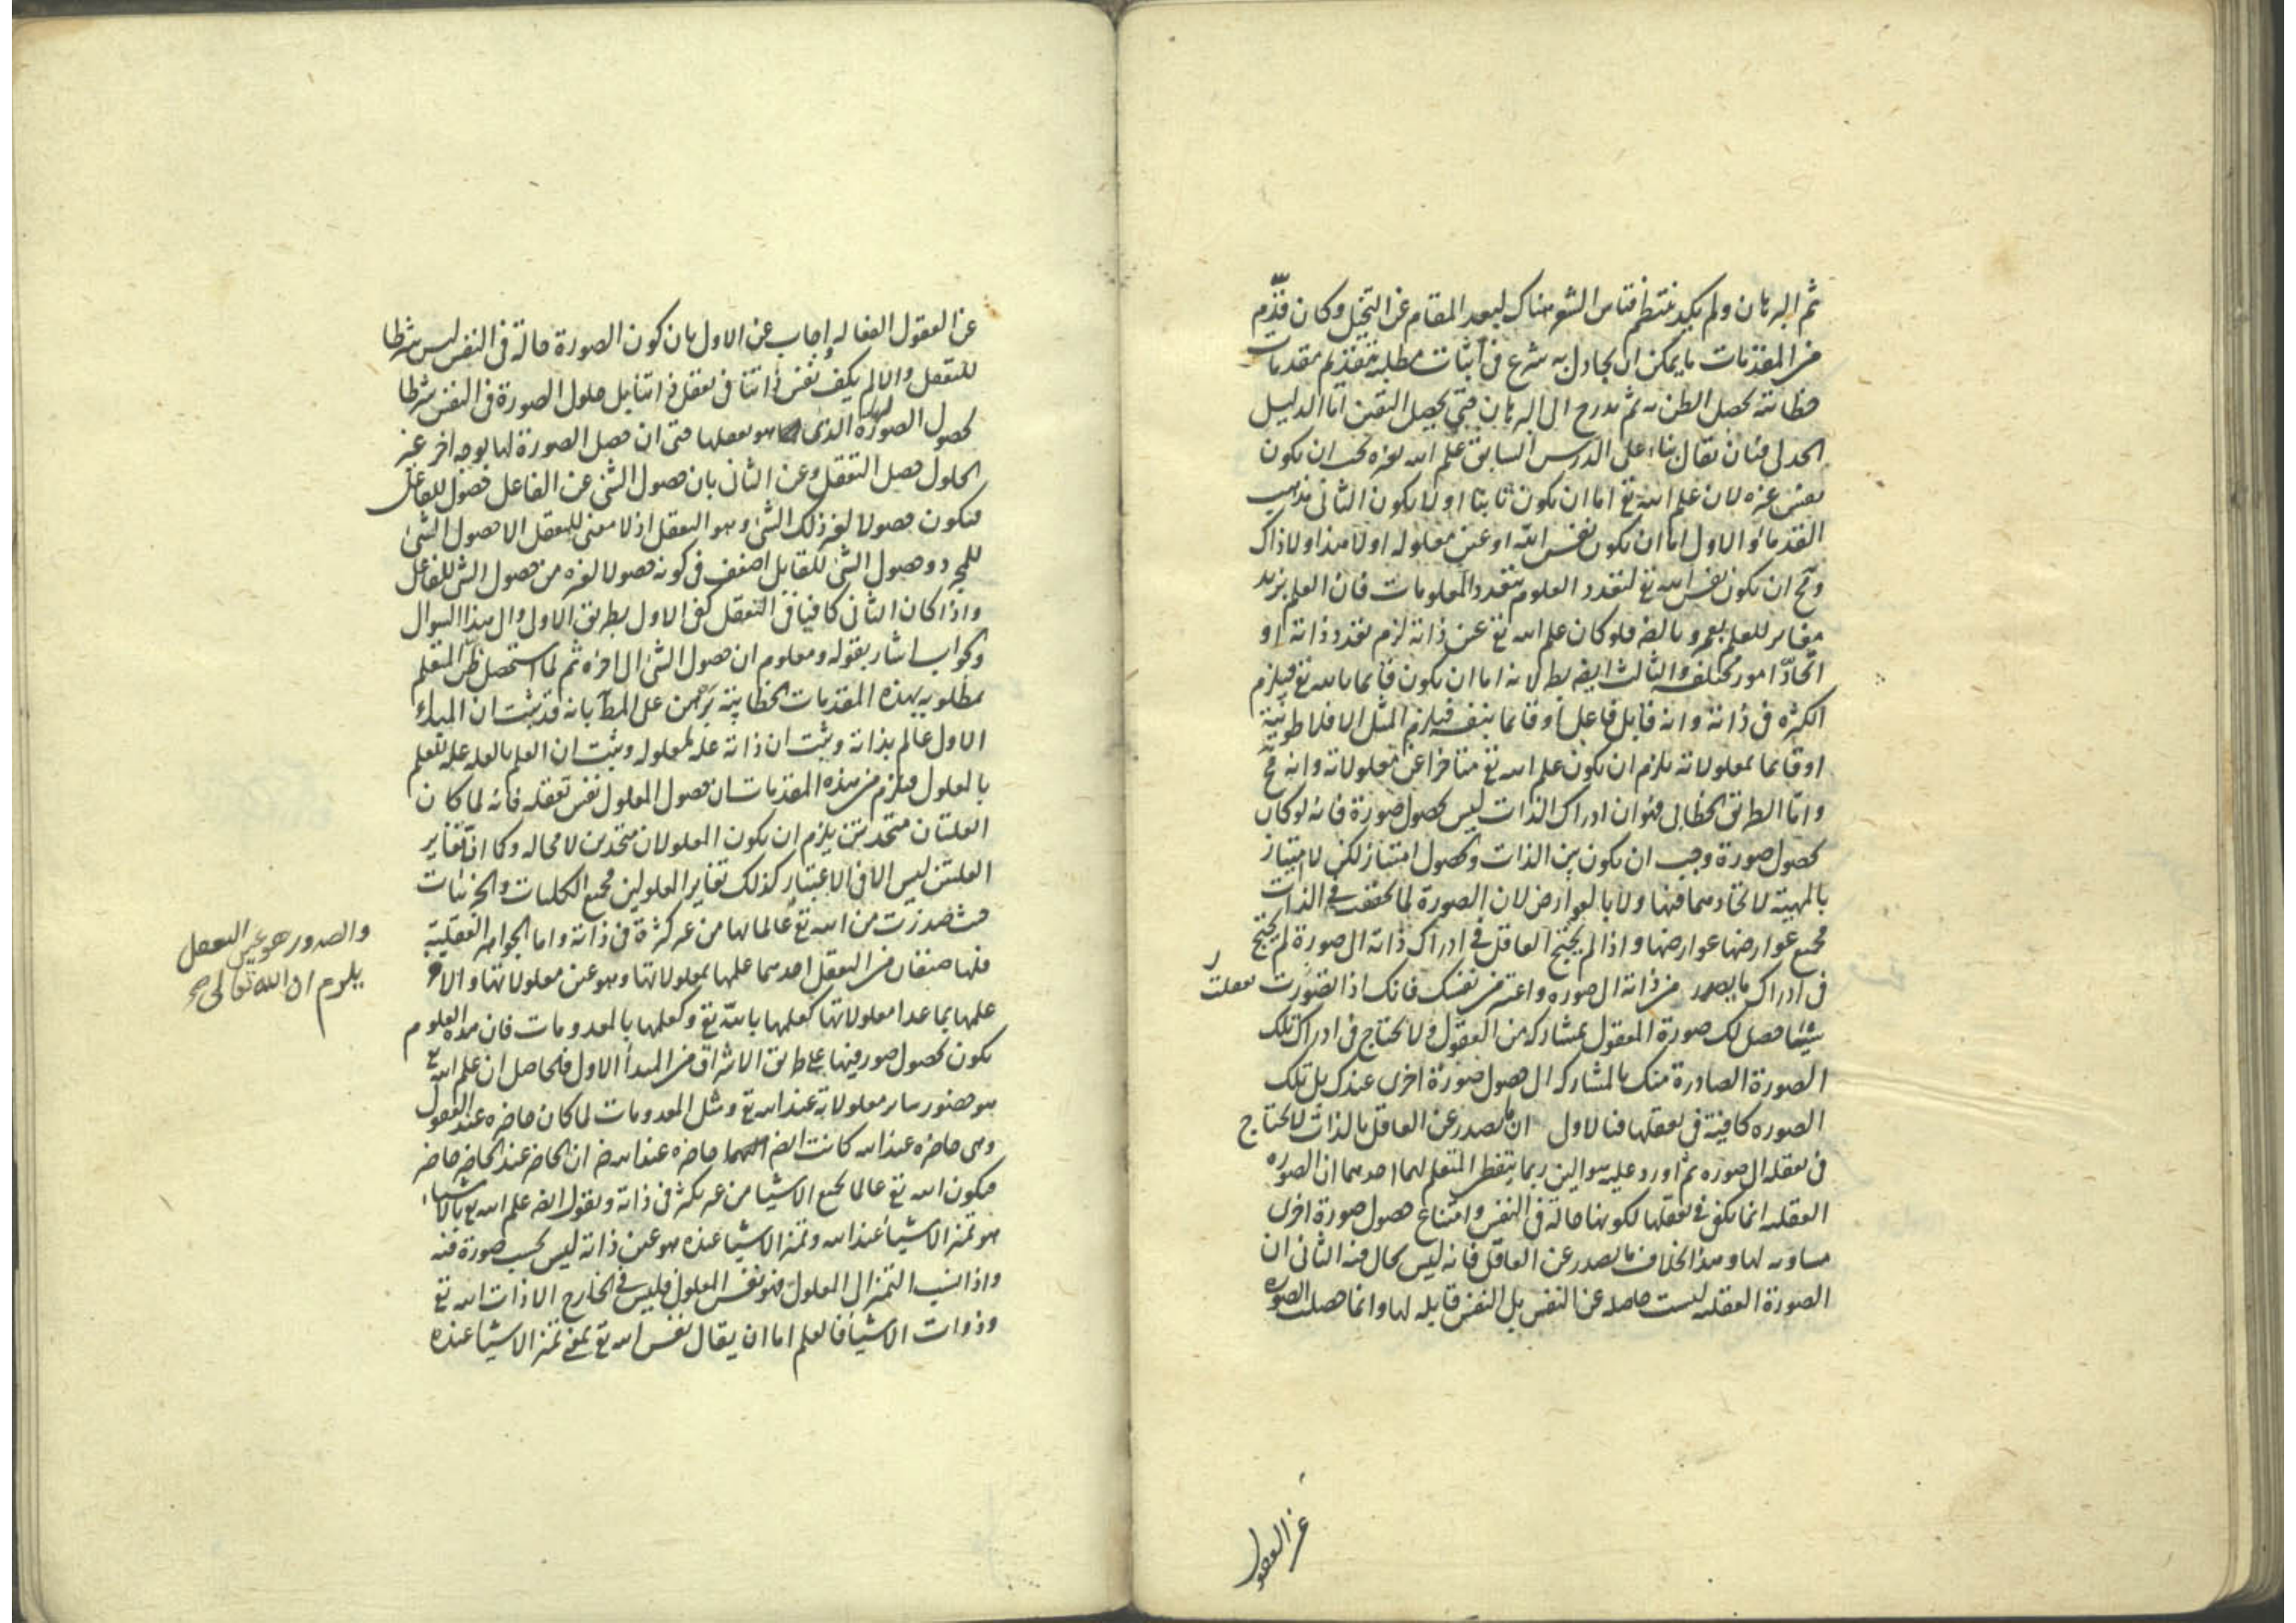 ثم البرهان ولم يكد ينتظم قياس الشعر هناك لبعد المقام عن التخيل وكان قدّم
من المقدمات ما يمكن ان يجادل به شرع فى اثبات مطلبه بتقديم مقدمات
خطابية لحصل الظن به ثم يدرج الى البرهان حتى يحصل اليقين اما الدليل
الجدلى فبان يقال بناء على الدرس السابق علم الله بغيره يجب ان يكون
نفس غيره لان علم الله تع اما ان يكون ثابتا او لا يكون الثانى مذهب
القدماء والاول اما ان يكون نفس الله او عين معلوله او لا هذا ولا ذاك
ومح ان يكون نفس الله تع لتعدد العلوم بتعدد المعلومات فان العلم بزيد
مغاير للعلم بعمرو بالضر فلو كان علم الله تع عين ذاته لزم تعدد ذاته او
اتحاد امور مختلفة والثالث ايضا بط لانه اما ان يكون قايما بالله تع فيلزم
الكثرة فى ذاته وانه قابل فاعل او قايما بنفسه فيلزم المثل الافلاطونية
او قايما بمعلولاته يلزم ان يكون علم الله تع متاخرا عن معلولاته وانه مح
واما الطريق الخطابى فهو ان ادراك الذات ليس بحصول صورة فانه لو كان
بحصول صورة وجب ان يكون بين الذات وبحصول امتياز لكن لا امتياز
بالمهية لاتحادهما فيها ولا بالعوارض لان الصورة لما تحققت فى الذات
فجميع عوارضها عوارضها واذا لم يحتج العاقل فى ادراك ذاته الى صورة لم يحتج
فى ادراك ما يصدر من ذاته الى صوره واعتبر من نفسك فانك اذا تصورت تعقلت
شيئا حصل لك صورة المعقول بمشاركة من العقول ولا تحتاج فى ادراك تلك
الصورة الصادرة منك بالمشاركه الى حصول صورة اخرى عندك بل تلك
الصوره كافية فى تعقلها فبالاولى ان ما يصدر عن العاقل بالذات لا يحتاج
فى تعقله الى صوره ثم اورد عليه سوالين ربما يتفطن المتعلم لهما احدهما ان الصوره
العقليه انما يكفى فى تعقلها لكونها حالة فى النفس وامتناع حصول صورة اخرى
مساويه لها وهذا بخلاف ما يصدر عن العاقل فانه ليس بحال فيه الثانى ان
الصورة العقليه ليست حاصله عن النفس بل النفس قابله لها وانما حصلت الصوره
عن العقول
عن العقول الفعاله واجاب عن الاول بان كون الصورة حالة فى النفس ليس شرطا
للتعقل والا لم يكف نفس ذاتنا فى تعقل ذاتنا بل حلول الصورة فى النفس شرطا
لحصول الصورة لها الذى هو تعقلها حتى ان حصل الصورة لها بوجه اخر غير
الحلول حصل التعقل وعن الثانى بان حصول الشئ عن الفاعل حصول للفاعل
فيكون حصولا لغير ذلك الشئ وهو التعقل اذ لا معنى للتعقل الا حصول الشئ
للمجرد وحصول الشئ للقابل اضعف فى كونه حصولا لغيره من حصول الشئ للفاعل
واذا كان الثانى كافيا فى التعقل كفى الاول بطريق الاولى والى هذا السوال
والجواب اشار بقوله ومعلوم ان حصول الشئ الى اخره ثم لما استحصل ظن المتعلم
بمطلوبه بهذه المقدمات الخطابية برهن على المط بانه قد ثبت ان المبدء
الاول عالم بذاته وثبت ان ذاته علة لمعلوله وثبت ان العلم بالعله عله للعلم
بالمعلول فيلزم من هذه المقدمات ان حصول المعلول نفس تعقله فانه لما كان
العلتان متحدتين يلزم ان يكون المعلولان متحدين لا محاله وكما ان تغاير
العلتين ليس الا فى الاعتبار كذلك تغاير المعلولين فجميع الكليات والجزئيات
حيث صدرت من الله تع عالما بها من غير كثرة فى ذاته واما الجواهر العقلية
والصدور هو عين التعقل
يلزم ان الله تعالى صح
فلها صنفان من التعقل احدهما علمها بمعلولاتها وهو عين معلولاتها والاخر
علمها بما عدا معلولاتها كعلمها بالله تع وكعلمها بالمعدومات فان هذه العلوم
يكون بحصول صور فيها على طريق الاشراق من المبدأ الاول فالحاصل ان علم الله تع
هو حضور ساير معلولاته عند الله تع ومثل المعدومات لما كان حاضره عند العقول
وهى حاضره عند الله كانت ايضا حاضره عند الله ضر ان الحاضر عند الحاضر حاضر
فيكون الله تع عالما بجميع الاشيا من غير تكثر فى ذاته ونقول ايضا علم الله تع بالاشياء
هو تميز الاشيا عند الله وتميز الاشيا عنده هو عين ذاته ليس بحسب صورة فيه
واذا نسب التميز الى المعلول فهو نفس المعلول فليس فى الخارج الا ذات الله تع
وذوات الاشيا فالعلم اما ان يقال نفس الله تع بمعنى تميز الاشيا عنده